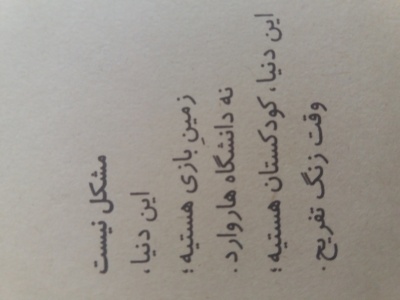 مشکل نیست
این دنیا،
زمینِ بازی هستیه؛
نه دانشگاه هاروارد.
این دنیا، کودکستان هستیه؛
وقت زنگ تفریح.